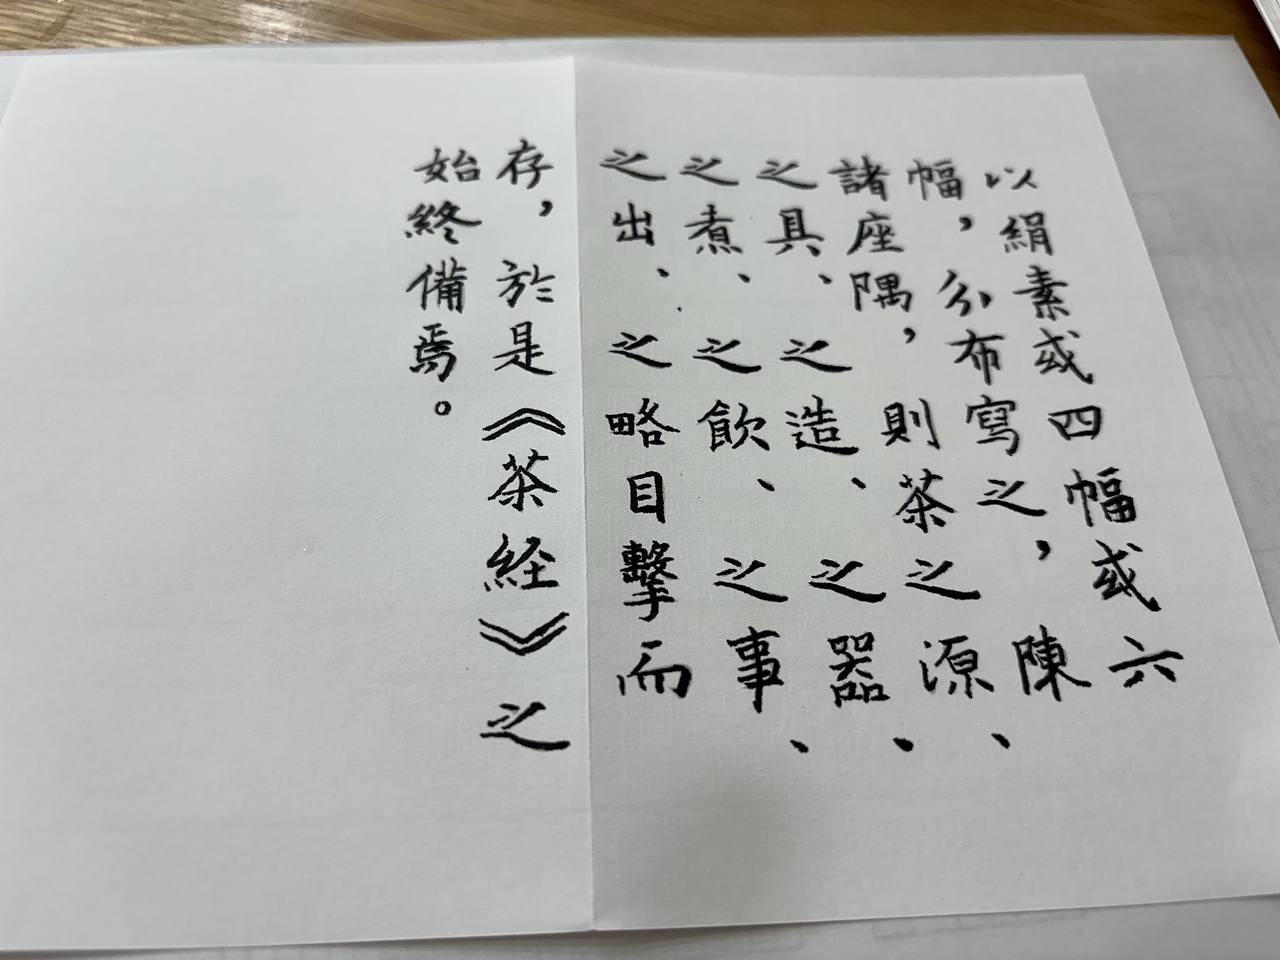 以絹素或四幅或六
幅，分布寫之，陳
諸座隅，則茶之源、
之具、之造、之器、
之煮、之飲、之事、
之出、之略目擊而
存，於是《茶経》之
始終備焉。